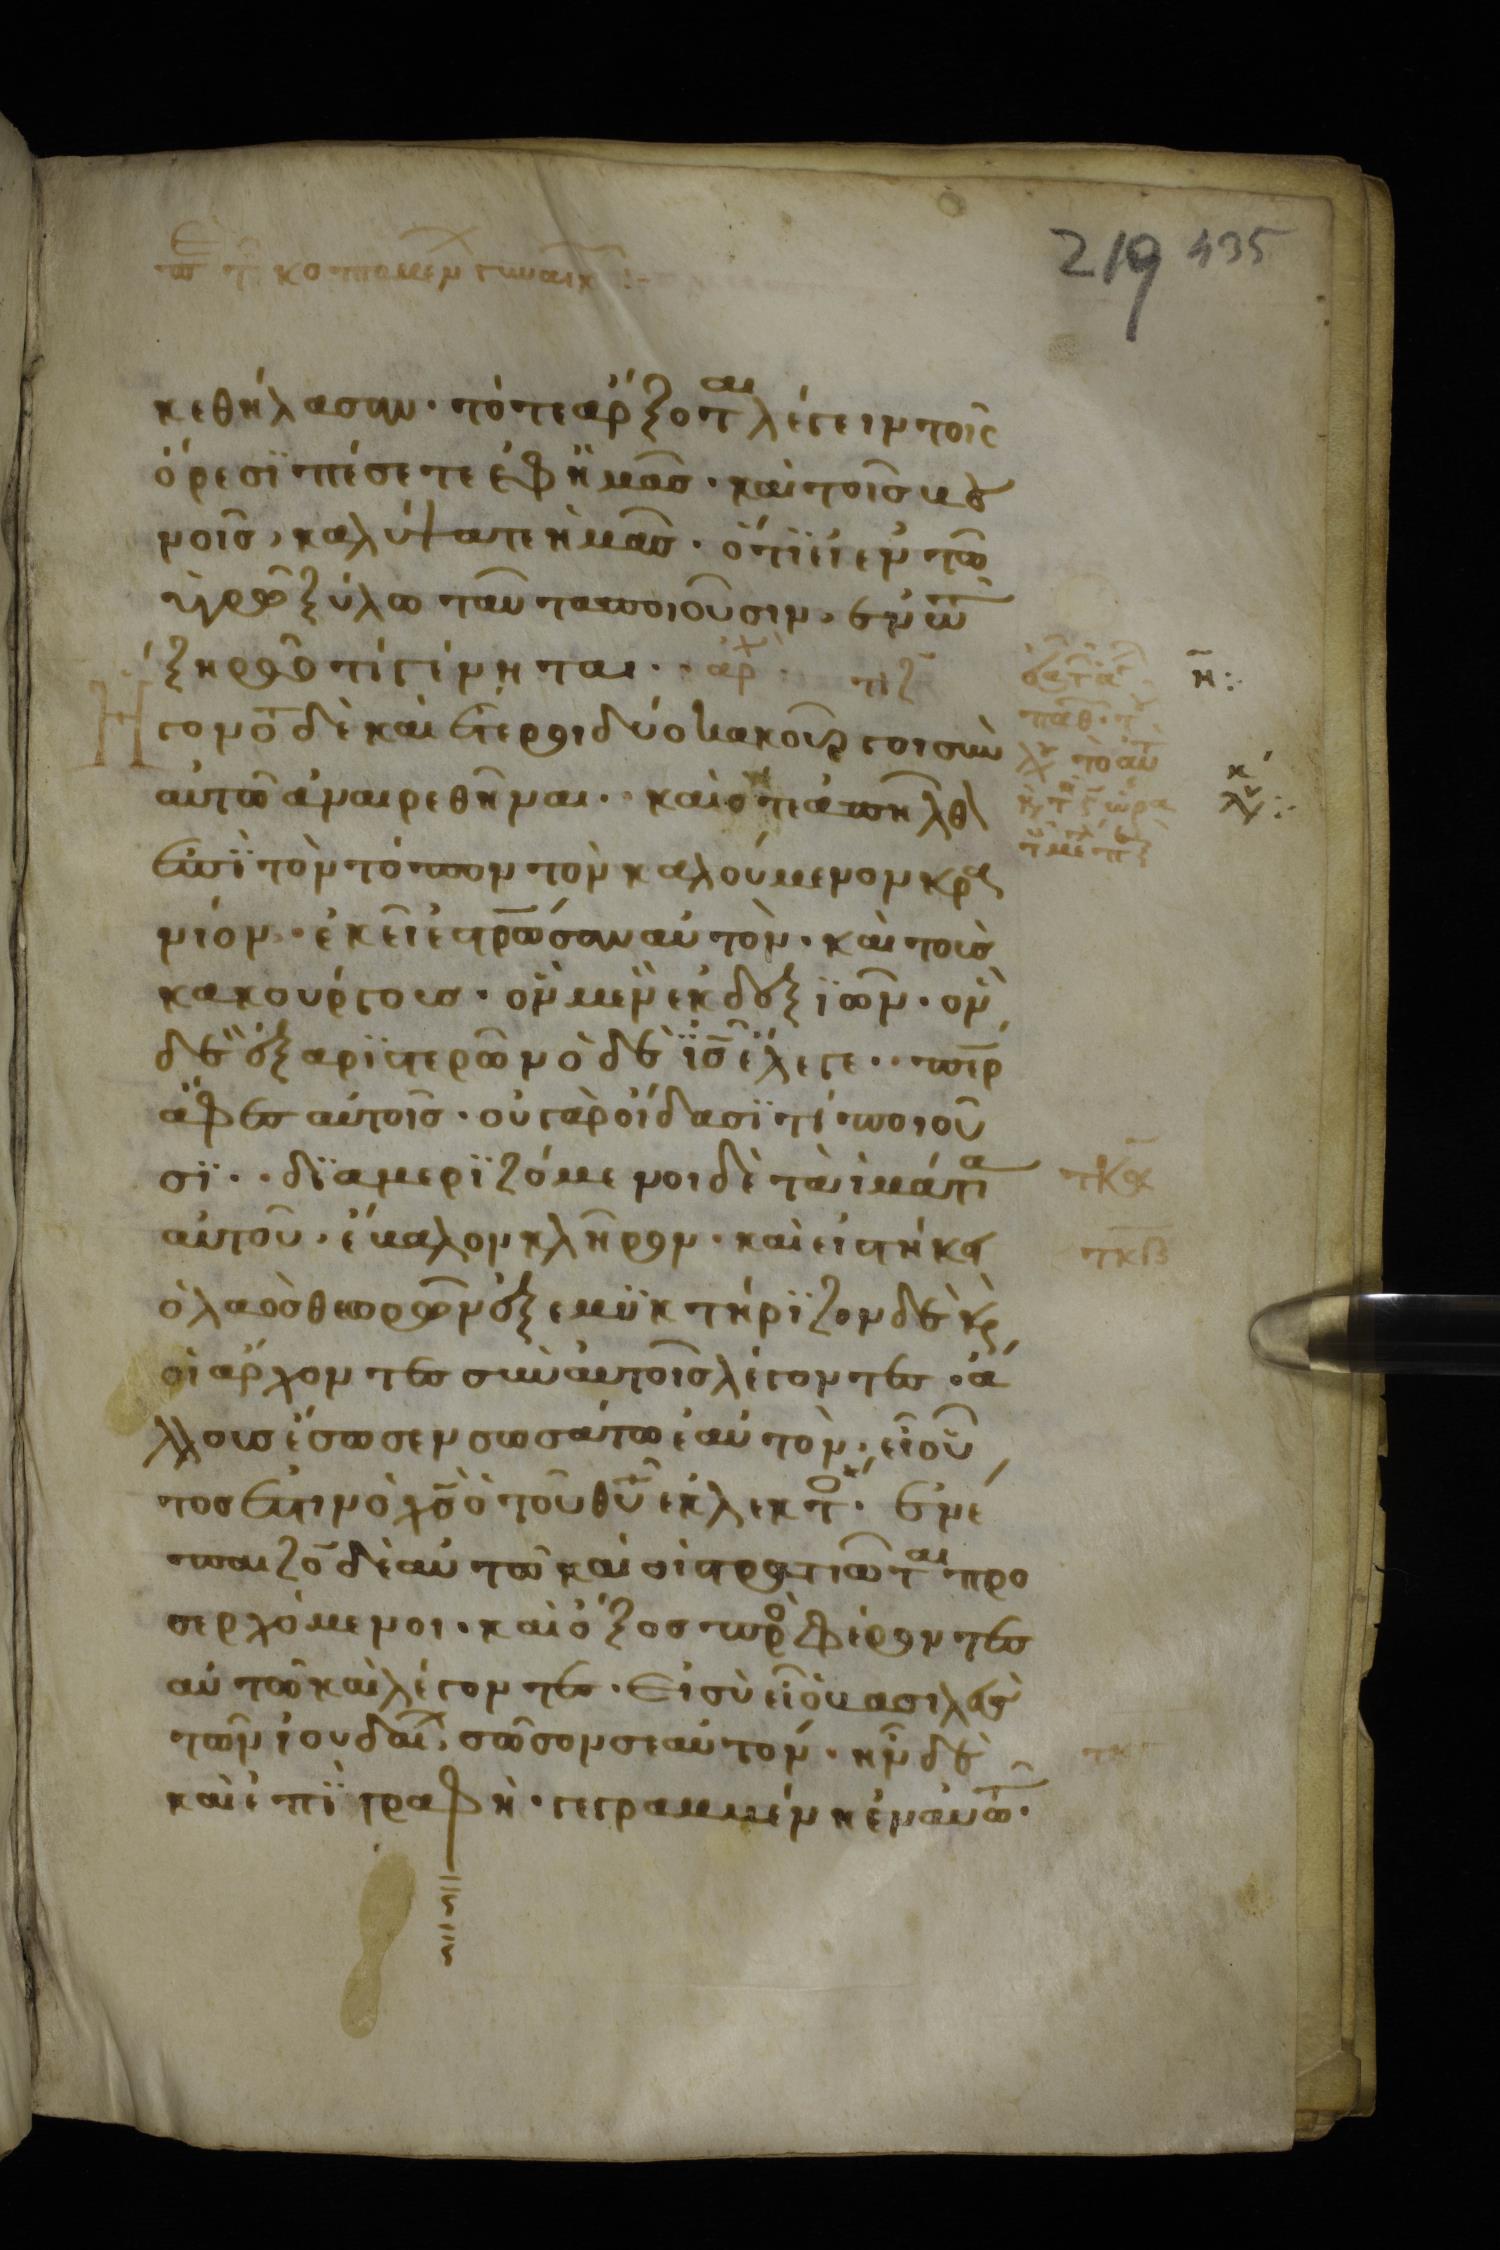 219 435
κεθήλασαν· τότε ἄρξοντ(αι) λέγειν τοῖς
ὄρεσϊ πέσετε ἐφ ἡμᾶσ· καὶ τοῖσ βου
νοῖσ, καλύψατε ἡμᾶσ· ὅτϊ εἰ ἐν τῶ
ὑγρῶ ξύλω ταῦτα ποιοῦσιν, ἐν τῶ
ξηρῶ τί γίνηται·· ἀρχ τιζ
Ηγοντο δὲ καὶ ἕτεροι δύο κακοῦργοι σὺν
αὐτῶ ἀναιρεθῆναι·· καὶ ὅτε ἀπῆλθον
ἐπϊ τὸν τόπον τὸν καλούμενον κρα
νίον· ἐκεῖ ἐσταύρωσαν αὐτὸν· καὶ τοὺσ
κακούργουσ· ὃν μὲν ἐκ δεξϊῶν· ὃν
δὲ ἐξ αρϊστερῶν ὁ δὲ ἰς ἔλεγε·· περ
ἄφεσ αὐτοῖσ· οὐ γὰρ οἴδασϊ τί ποιοῦ
σϊ·· δϊαμερϊζόμενοι δὲ τὰ ἱμάτια
αὐτοῦ· ἔβαλον κλῆρον· καὶ εἱστήκει
ὁ λαὸσ θεωρῶν ἐξεμϋκτήρϊζον δὲ καὶ
οἱ ἄρχοντεσ σὺν αὐτοῖσ λέγοντεσ· ἄ
λλουσ ἔσωσεν σωσάτω ἑαυτὸν, εἰ οὗ
τοσ ἐστιν ὁ χς ὁ τοῦ θυ ἐκλεκτος· ἐνέ
παιζον δὲ αὐτῶ καὶ οἱ στρατιῶται προ
σερχόμενοι· καὶ ὄξοσ προσφέροντεσ
αὐτῶ καὶ λέγοντεσ· Εἰ σὺ εἶ ὁ βασιλεὺσ
τῶν ἰουδαίων, σῶσον σεαυτόν· ἦν δὲ
καὶ ἐπϊγραφὴ· γεγραμμένη ἐν αὐτῶ·
τκα
τκβ